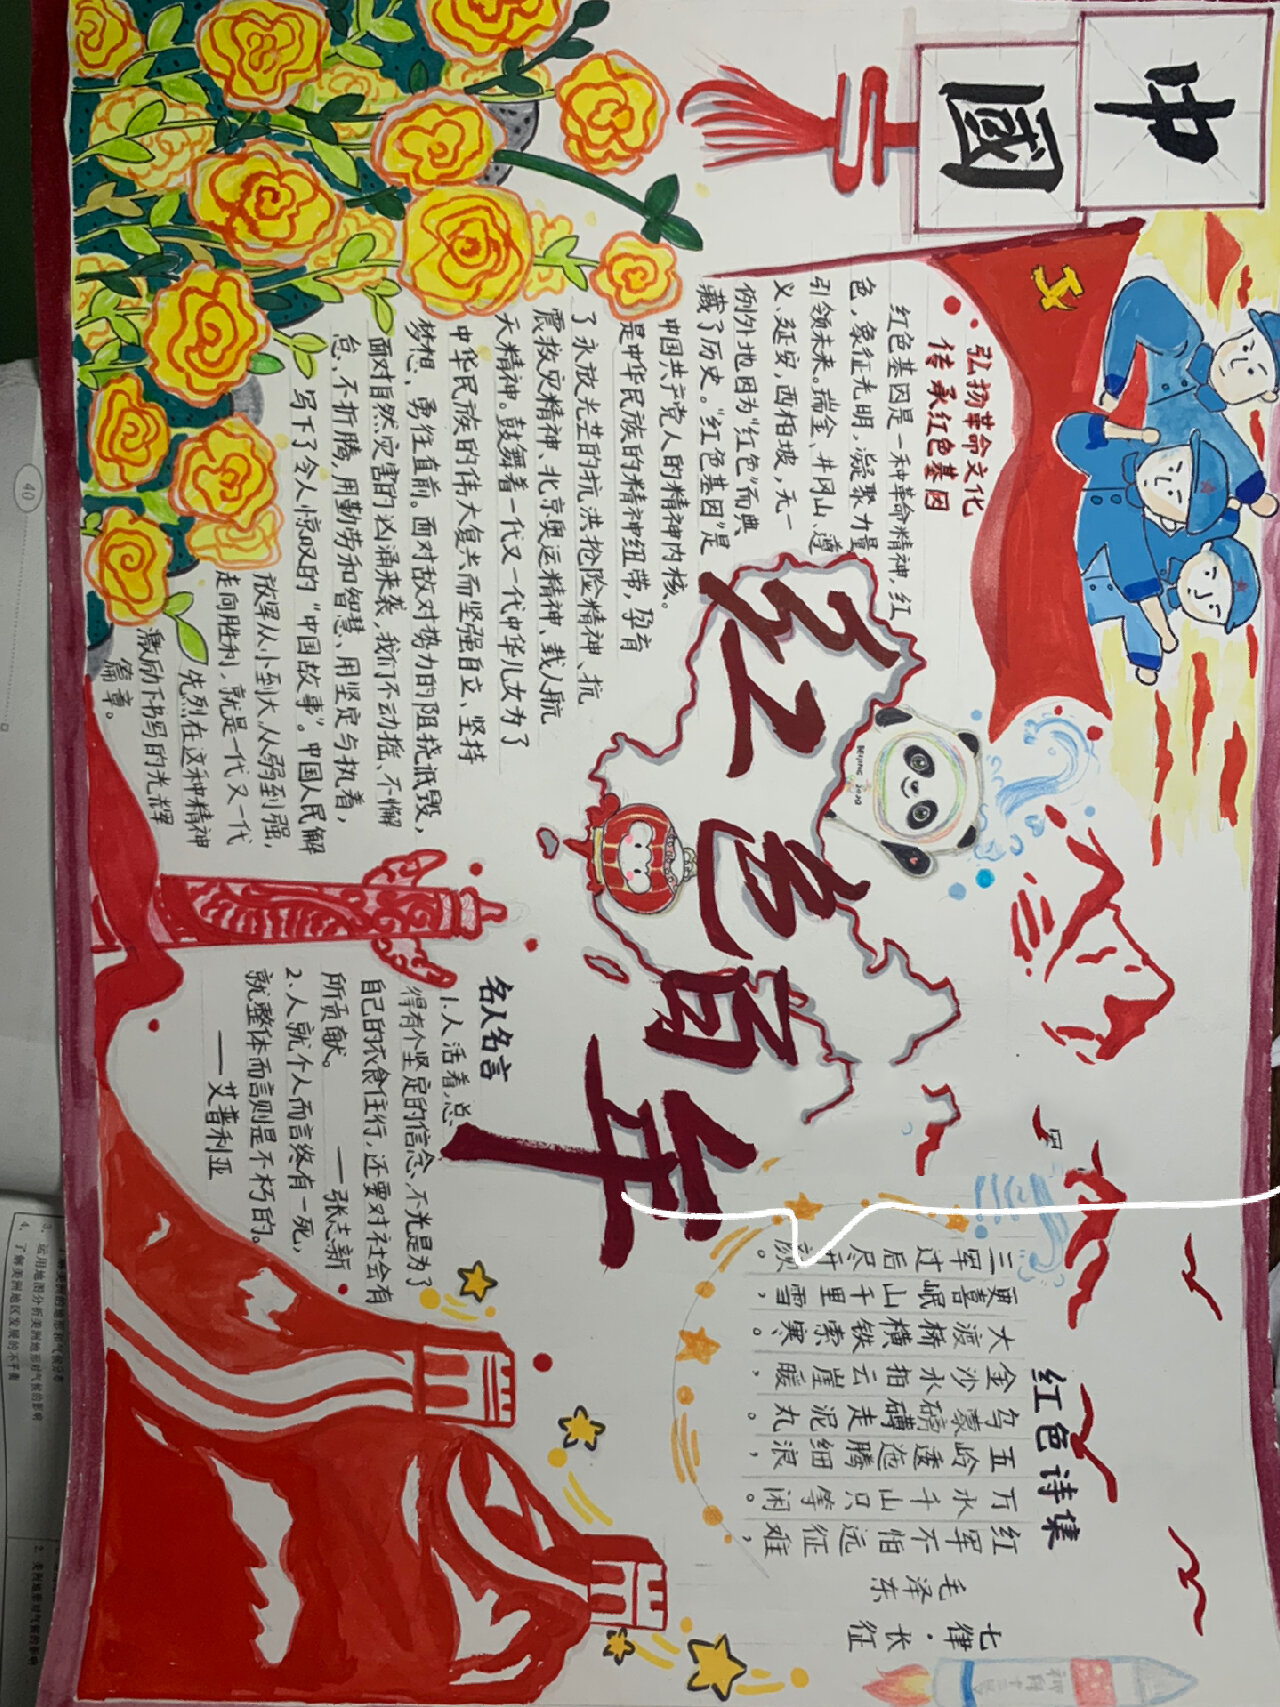 中國
弘扬革命文化
传承红色基因
红色基因是一种革命精神,红
色,象征光明,凝聚力量
引领未来。瑞金、井冈山、遵
义、延安,西柏坡,无一
例外地因为“红色”而典
藏了历史。“红色基因”是
中国共产党人的精神内核。
是中华民族的精神纽带,孕育
了永放光芒的抗洪抢险精神、抗
震救灾精神、北京奥运精神、载人航
天精神。鼓舞着一代又一代中华儿女为了
中华民族的伟大复兴而坚强自立、坚持
梦想,勇往直前。面对敌对势力的阻挠诋毁,
面对自然灾害的凶涌来袭,我们不动摇、不懈
怠、不折腾,用勤劳和智慧、用坚定与执着,
写下了令人惊叹的“中国故事”。中国人民解
放军从小到大、从弱到强,
走向胜利,就是一代又一代
先烈在这种精神
激励下书写的光辉
篇章。
红色百年
BEIJING 2022
名人名言
1.人活着,总
得有个坚定的信念、不光是为了
自己的衣食住行,还要对社会有
所贡献。
——张志新
2.人就个人而言终有一死,
就整体而言则是不朽的。
——艾普利亚
红色诗集
七律·长征
毛泽东
红军不怕远征难,
万水千山只等闲。
五岭逶迤腾细浪,
乌蒙磅礴走泥丸。
金沙水拍云崖暖,
大渡桥横铁索寒。
更喜岷山千里雪,
三军过后尽开颜。
40
3、运用地图分析美洲地形对气候的影响
4、了解美洲地区发展的不平衡
2. 美洲地形对气候的影响